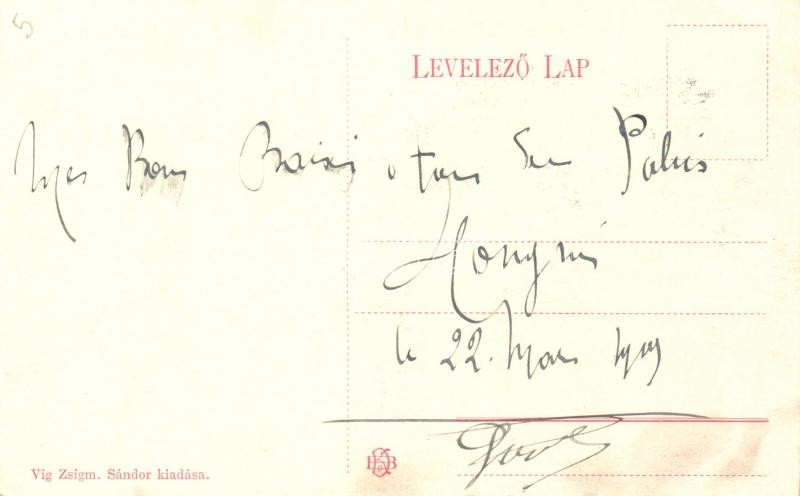 5
LEVELEZŐ LAP
Mes Bons Baisis a tous Palis
Hongrie
le 22. Mars 1909
Vig Zsigm. Sándor kiadása.